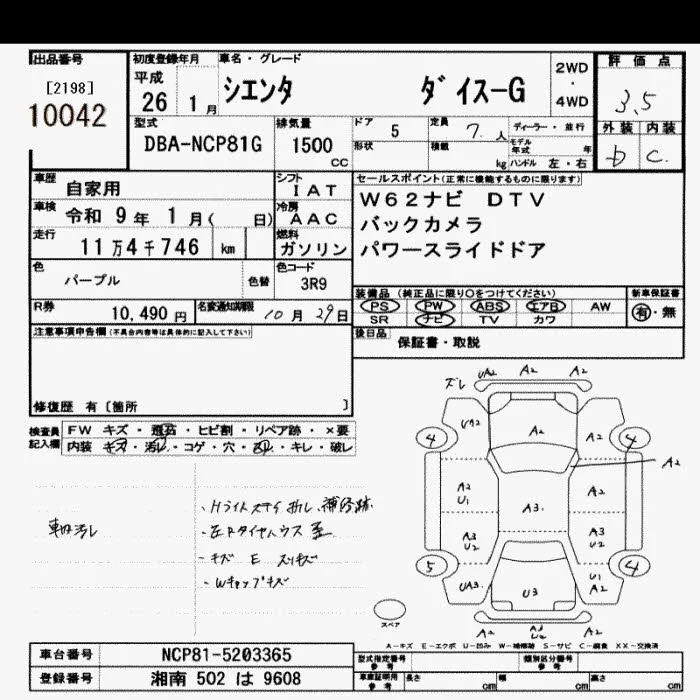 出品番号
[2198]
10042
初度登録年月
平成
26 1 月
車名・グレード
シエンタ ダイス-G
2WD
・
4WD
評価点
3.5
外装 内装
b c.
型式
DBA-NCP81G
排気量
1500
cc
ドア
5
定員
7. 人
ディーラー・並行
形状
積載
kg
モデル年式 年
ハンドル 左・右
車歴
自家用
シフト
IAT
車検
令和 9 年 1 月( 日)
冷房
AAC
走行
11万4千746 km
燃料
ガソリン
色
パープル
色替
色コード
3R9
R券
10,490 円
名変通知期限
10 月 29 日
セールスポイント(正常に機能するものに限ります)
W62ナビ DTV
バックカメラ
パワースライドドア
装備品 (純正品に限り○をつけてください)
新車保証書
PS PW ABS エアB AW
SR ナビ TV カワ
有・無
後日品
保証書・取説
注意事項申告欄(不具合内容等は具体的に記入して下さい)
修復歴 有〔箇所 〕
検査員
記入欄
FW キズ・飛石・ヒビ割・リペア跡・×要
内装 キズ・汚レ・コゲ・穴・・キレ・破レ
・Hライトステイ折レ、補修跡
・左Rタイヤハウス
・キズ E スリキズ
・Wキャップキズ
ズレ UA2 A2 A2
UA2 A2
4 4
A2
A2
U1
A3.
A2
A3
U2
A3
U2
5 4
UA3. U3 U1
A2
A2 A3
U2 A2
スペア
A-キズ E-エクボ U-凹み W-補修跡 S-サビ C-腐食 XX-交換済
車台番号
NCP81-5203365
登録番号
湘南 502 は 9608
型式指定番号
参考
類別区分番号
参考
車庫証明用
参考
長さ cm 幅 cm 高さ cm